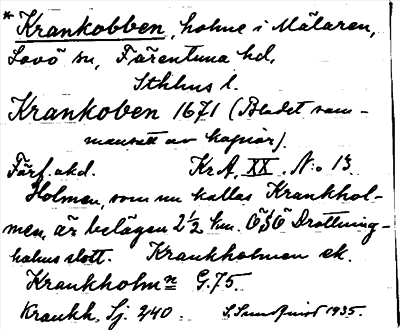 * Krankobben, holme i Mälaren,
Lovö sn, Färentuna hd,
Sthlms l.
Krankoben 1671 (Bladet sam-
mansatt av kopior).
Färf. akd. KrA, XX. N:o 13.
Holmen, som nu kallas Krankhol-
men, är belägen 2 1/2 km. ÖSÖ Drottning-
holms slott. Krankholmen ek.
Krankholmn G.75.
Krankh. Sj. 240. S. Sundqvist 1935.